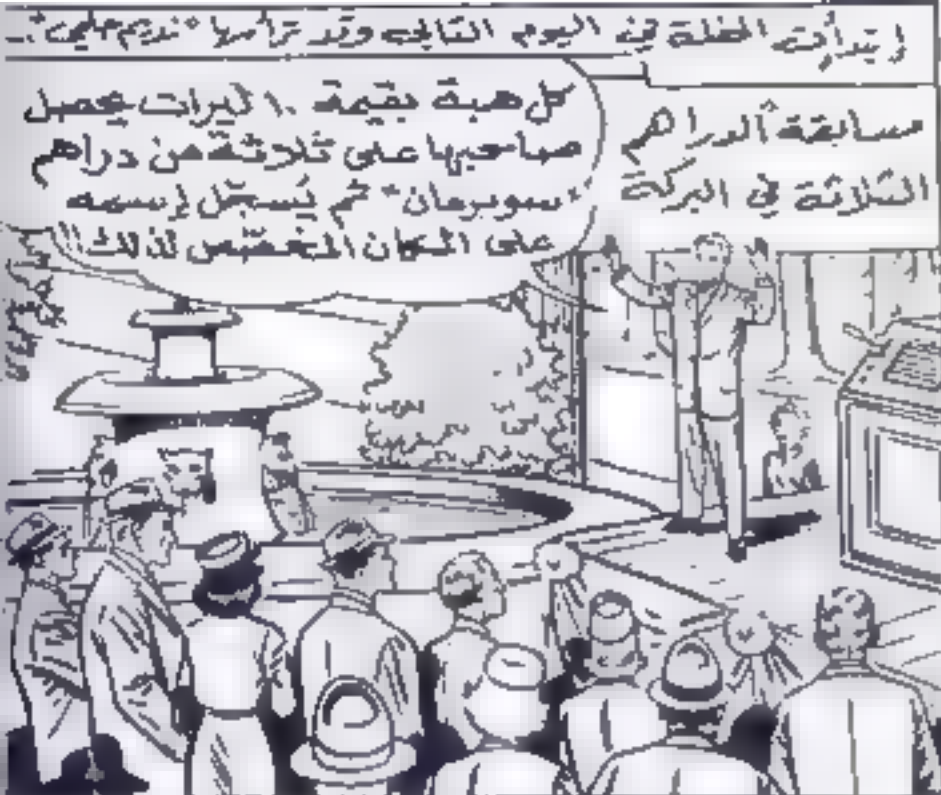 إبتدأت الحفلة في اليوم التالي وقد ترأسها "نديم حلمي"..
مسابقة الدراهم
الثلاثة في البركة
كل هبة بقيمة ١٠ ليرات يحصل
صاحبها على ثلاثة من دراهم
"سوبرمان" ثم يُسجّل إسمه
على المكان المخصّص لذلك!!